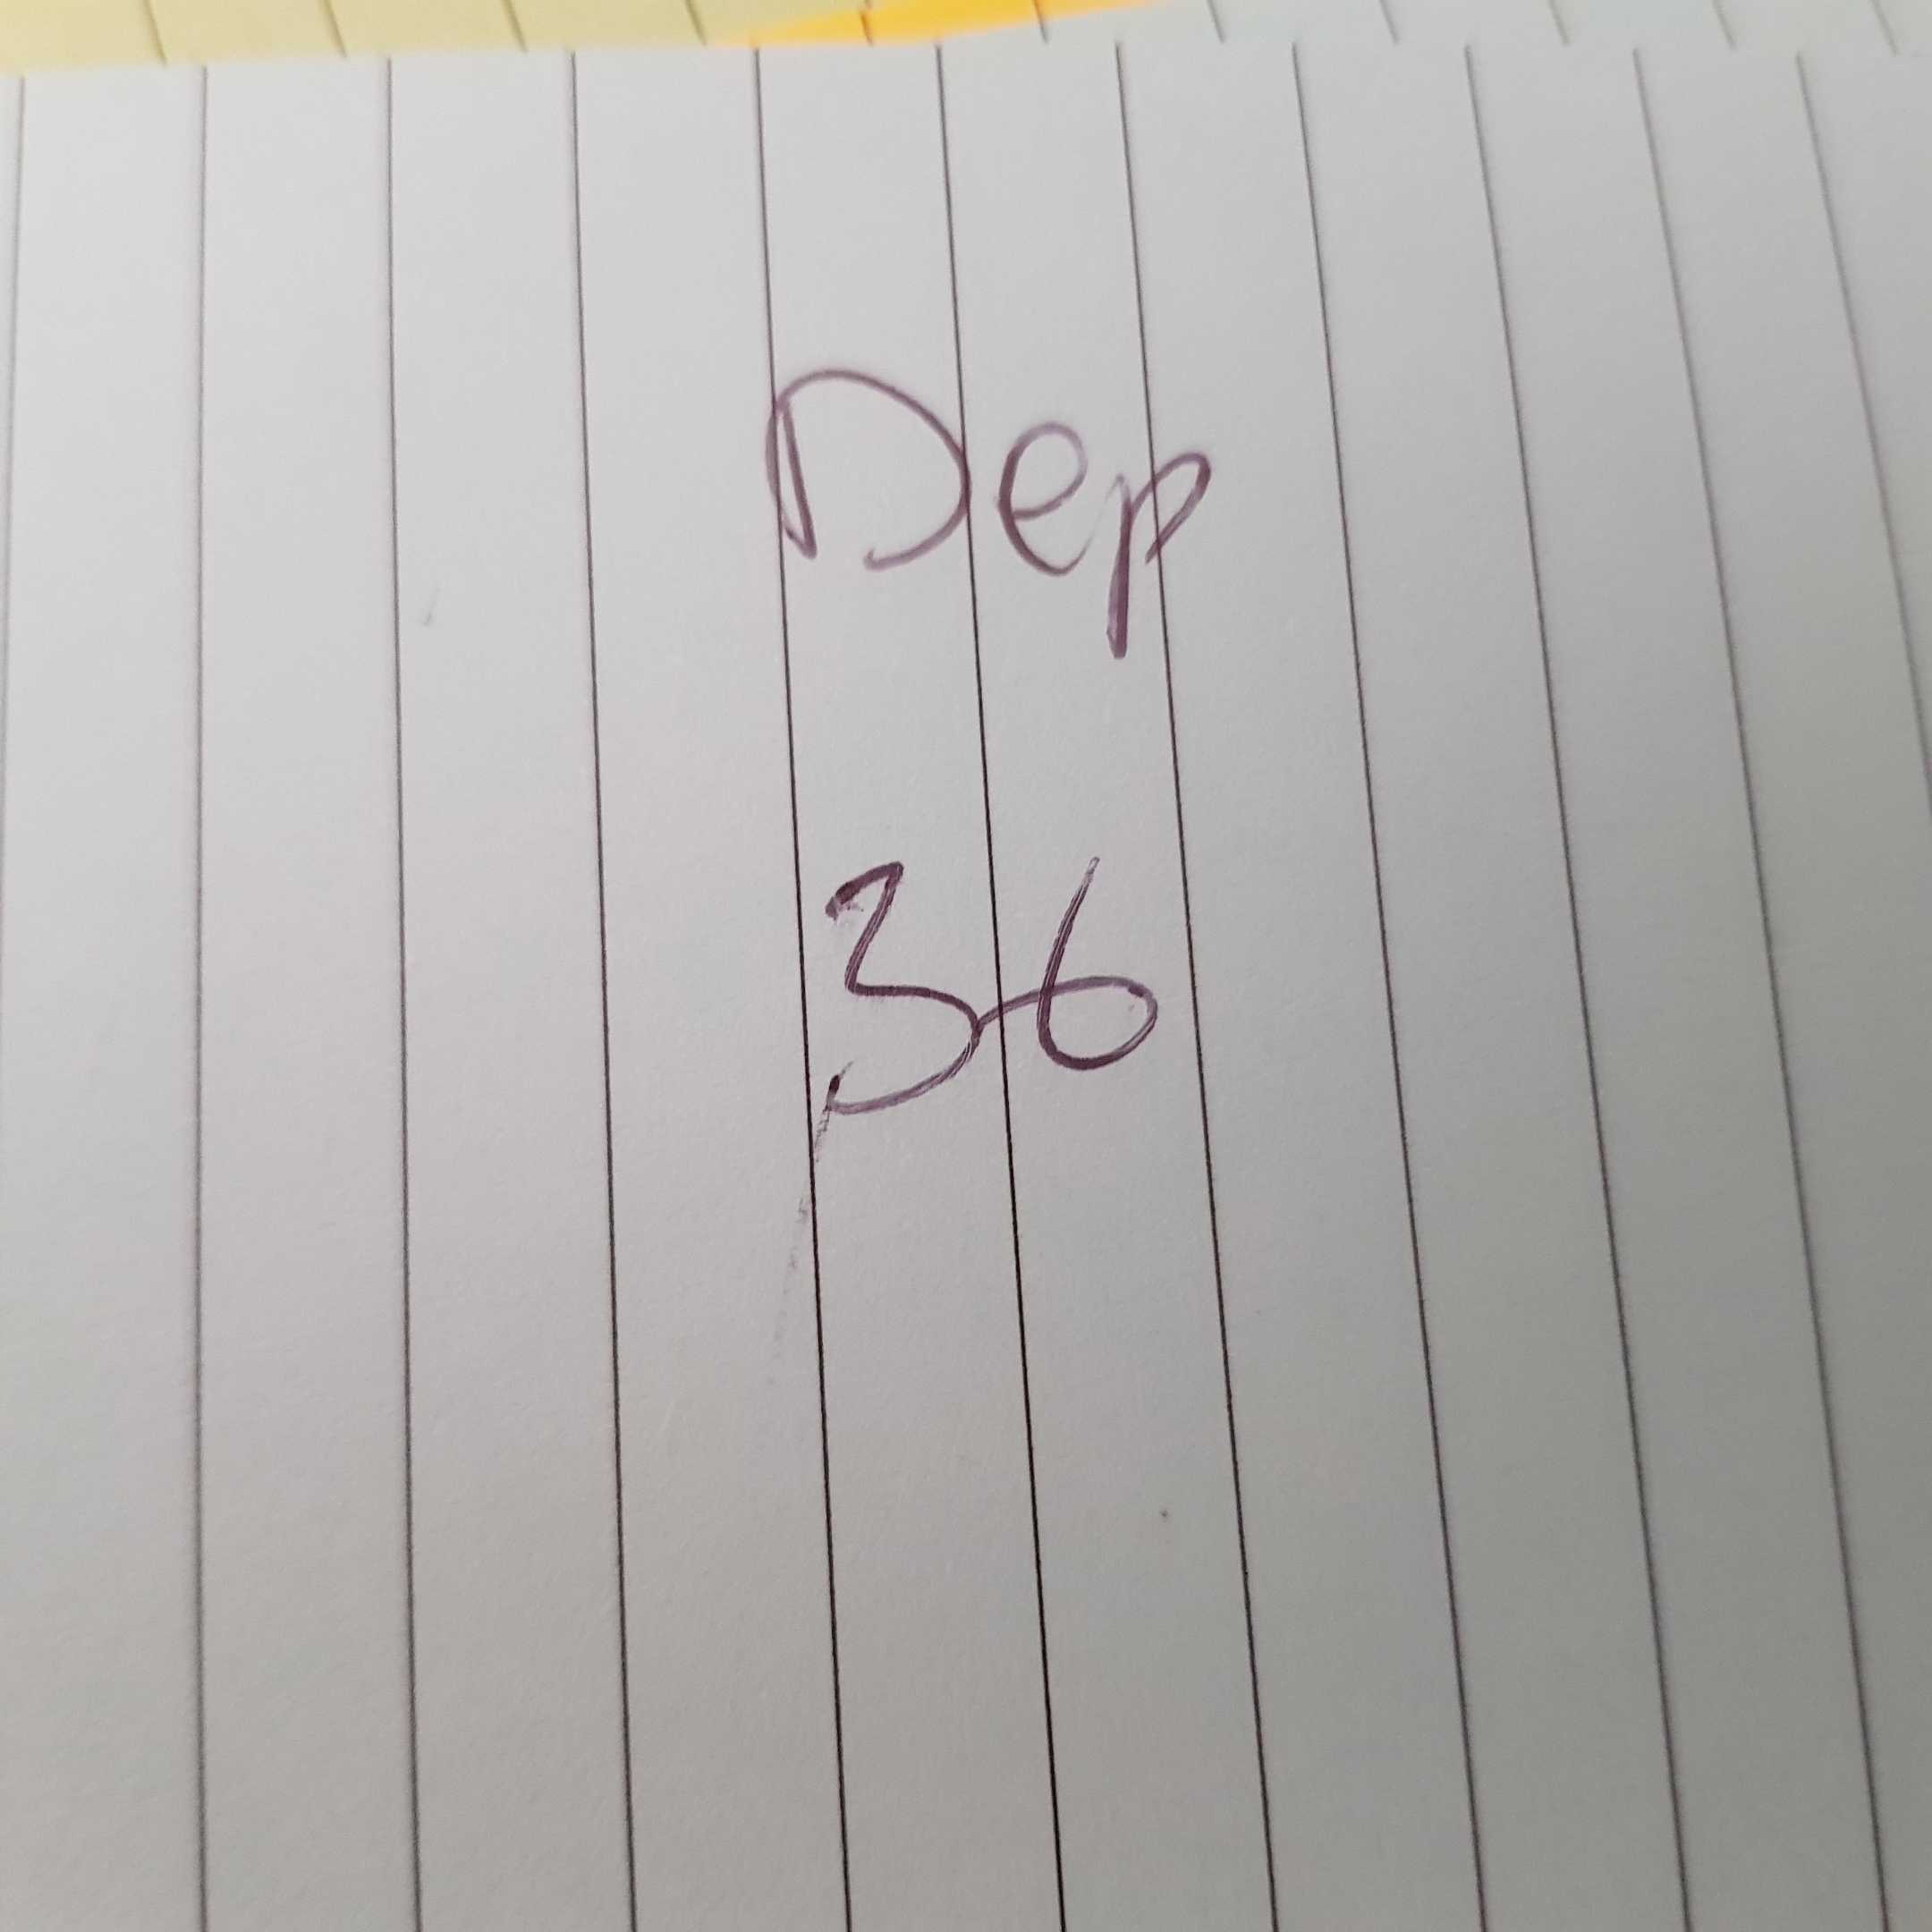 Dep
36